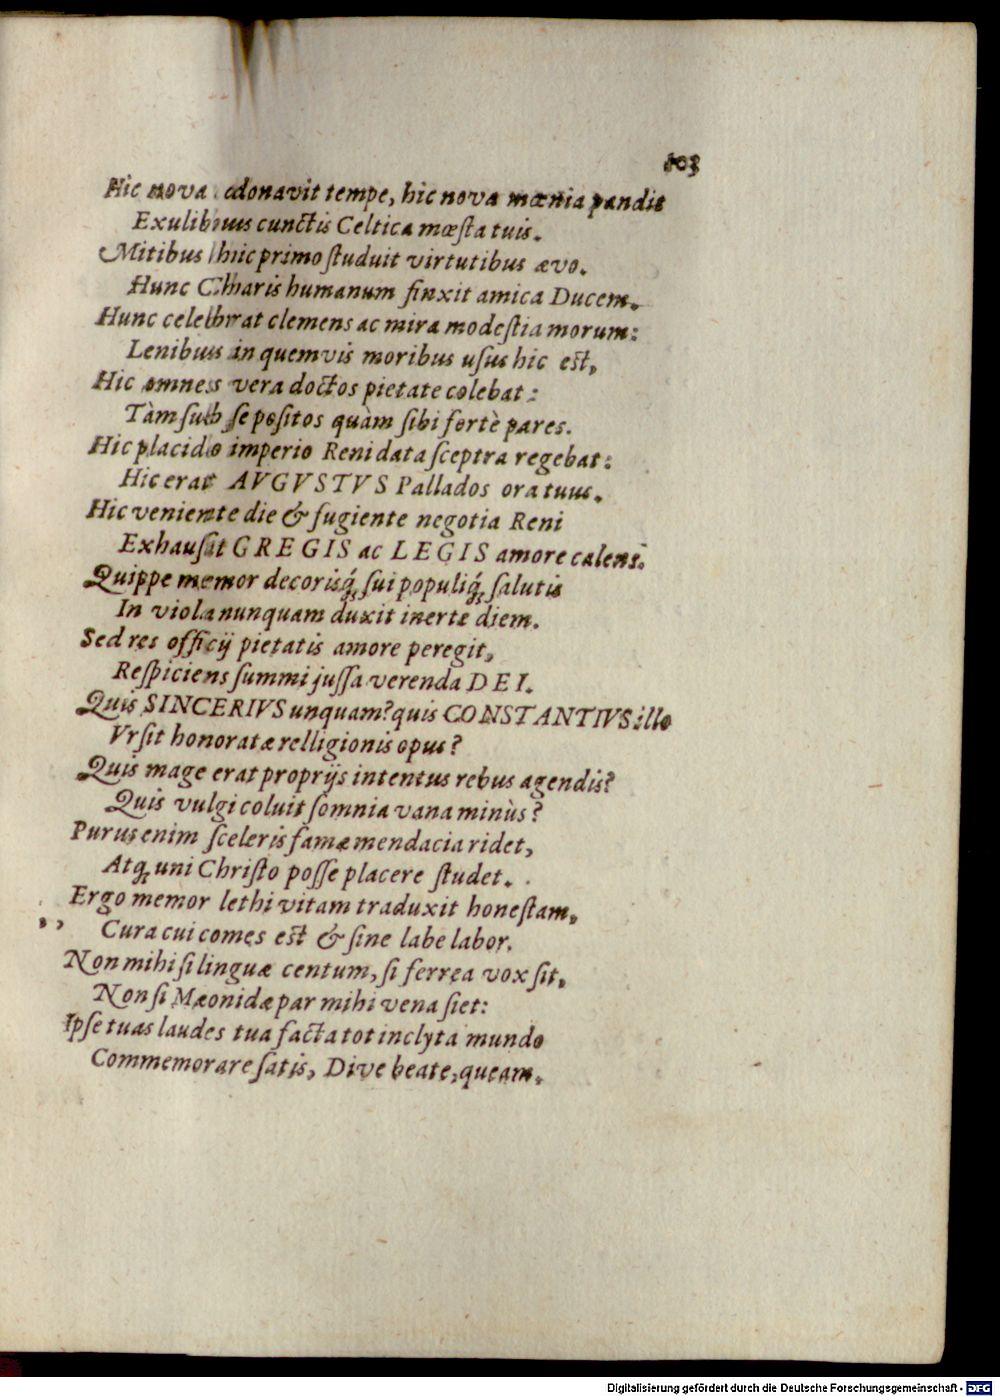 103
Hic nova donavit tempe, hic nova mœnia pandit
Exulibus cunctis Celtica mœsta tuis.
Mitibus hic primo studuit virtutibus ævo.
Hunc Charis humanum finxit amica Ducem.
Hunc celebrat clemens ac mira modestia morum:
Lenibus in quemvis moribus usus hic est,
Hic omnes vera doctos pietate colebat:
Tàm sub se positos quàm sibi fortè pares.
Hic placido imperio Reni data sceptra regebat:
Hic erat AVGVSTVS Pallados ora tuus.
Hic veniente die & fugiente negotia Reni
Exhausit GREGIS ac LEGIS amore calens.
Quippe memor decorisq́; sui populiq́; salutis
In viola nunquam duxit inerte diem.
Sed res officij pietatis amore peregit,
Respiciens summi jussa verenda DEI.
Quis SINCERIVS unquam? quis CONSTANTIVS illo
Vrsit honoratæ relligionis opus?
Quis mage erat proprijs intentus rebus agendis?
Quis vulgi coluit somnia vana minùs?
Purus enim sceleris famæ mendacia ridet,
Atq; uni Christo posse placere studet.
Ergo memor lethi vitam traduxit honestam,
Cura cui comes est & sine labe labor.
Non mihi si linguæ centum, si ferrea vox sit,
Non si Mæonidæ par mihi vena siet:
Ipse tuas laudes tua facta tot inclyta mundo
Commemorare satis, Dive beate, queam.
Digitalisierung gefördert durch die Deutsche Forschungsgemeinschaft - DFG